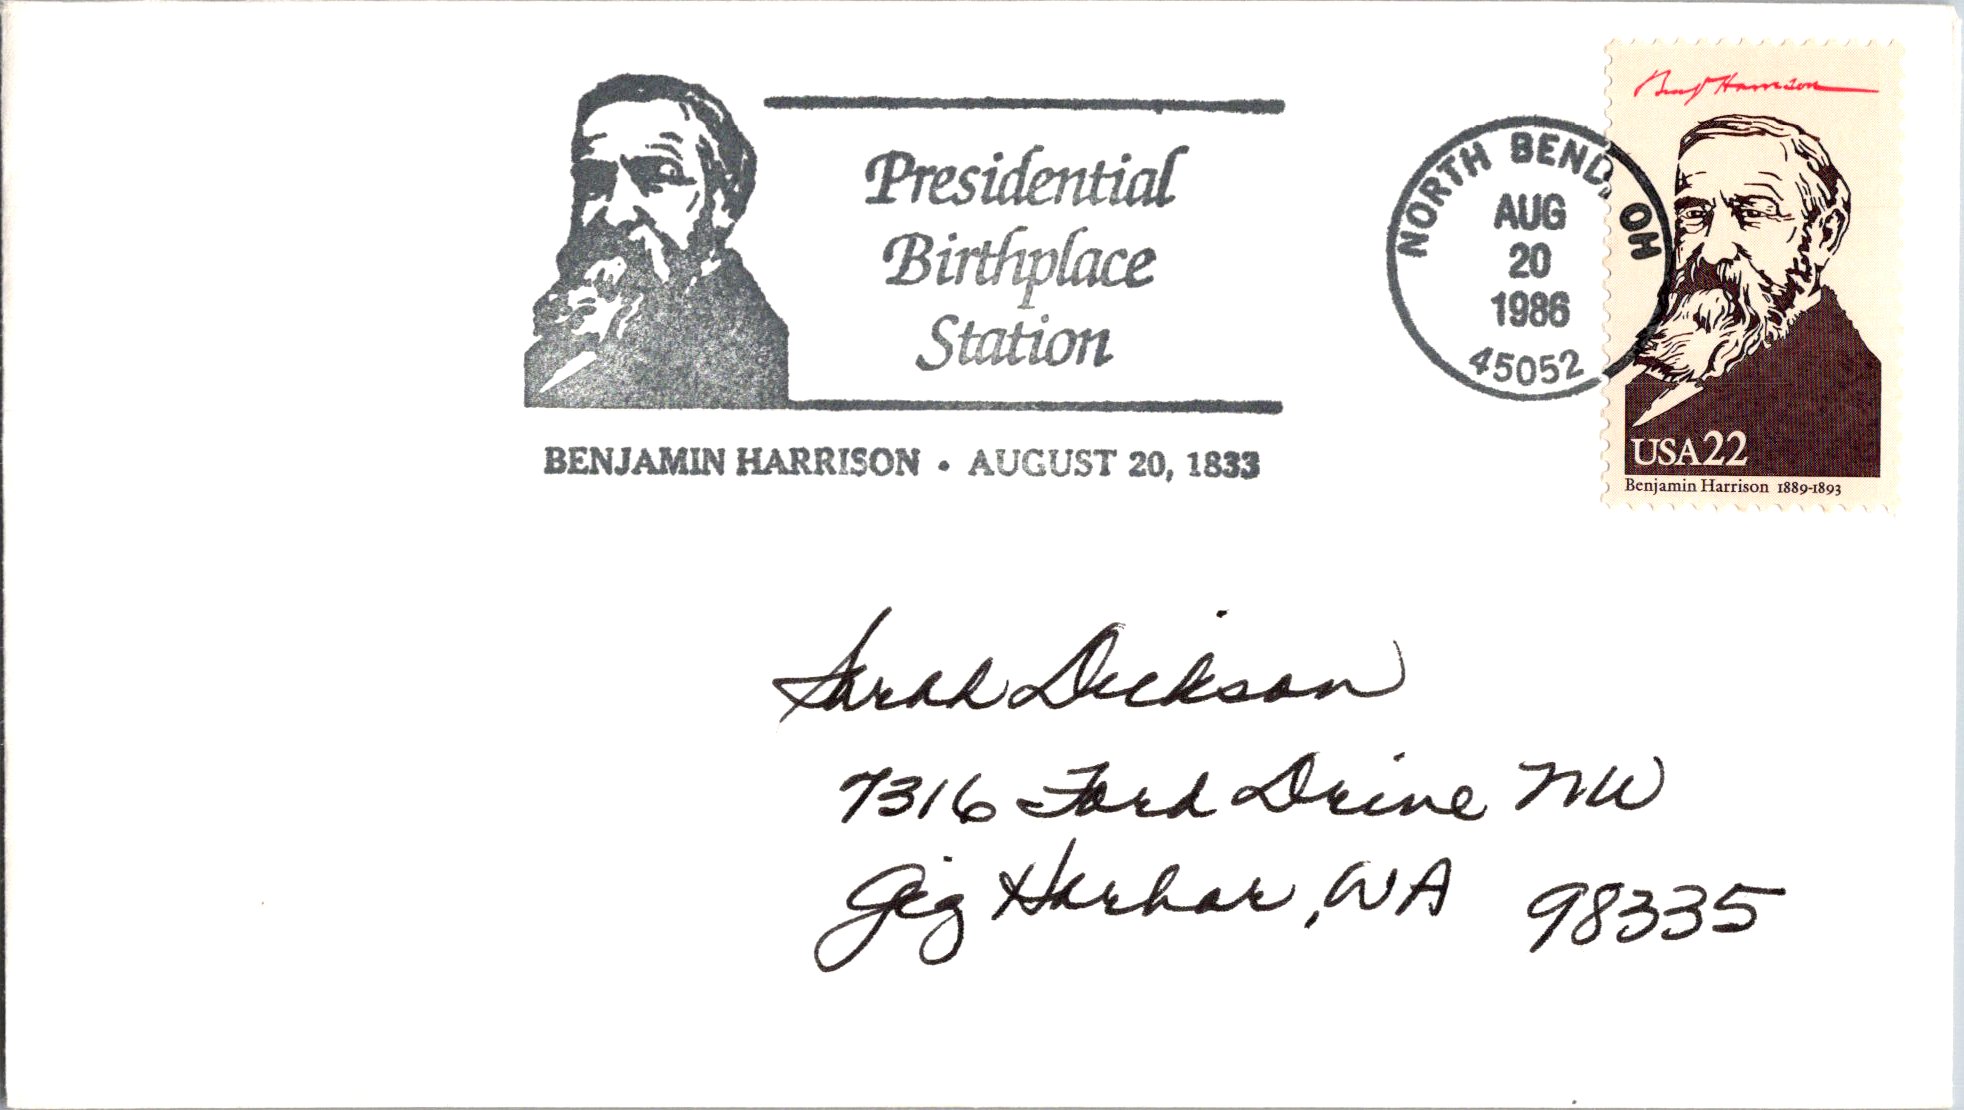 Presidential
Birthplace
Station
BENJAMIN HARRISON • AUGUST 20, 1833
NORTH BEND, OH
AUG
20
1986
45052
Benj Harrison
USA 22
Benjamin Harrison 1889-1893
Sarah Dickson
7316 Ford Drive NW
Gig Harbor, WA 98335